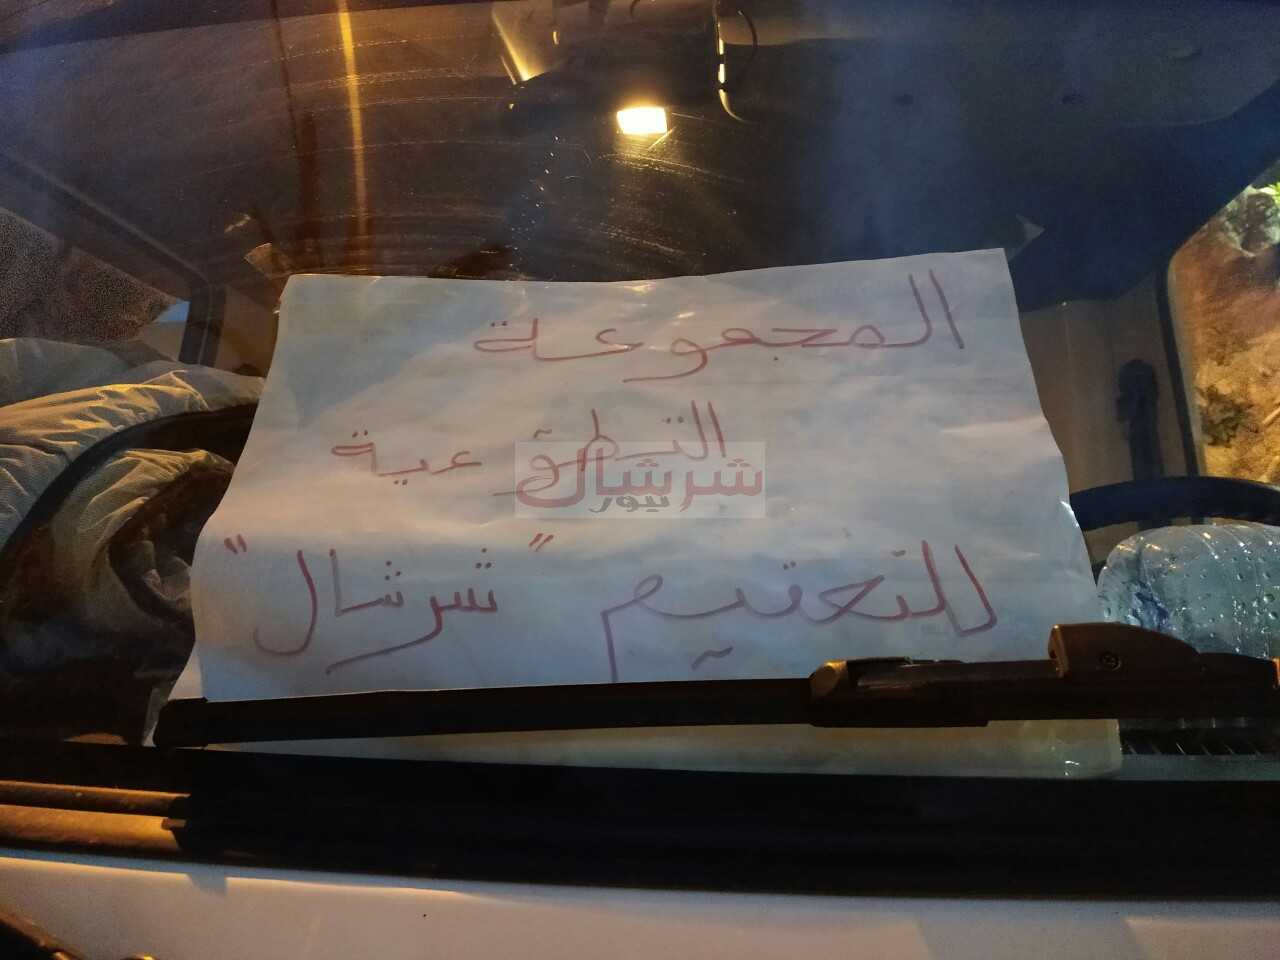 المجموعة
التطوعية
شرشال
نيوز
للتعقيم "شرشال"